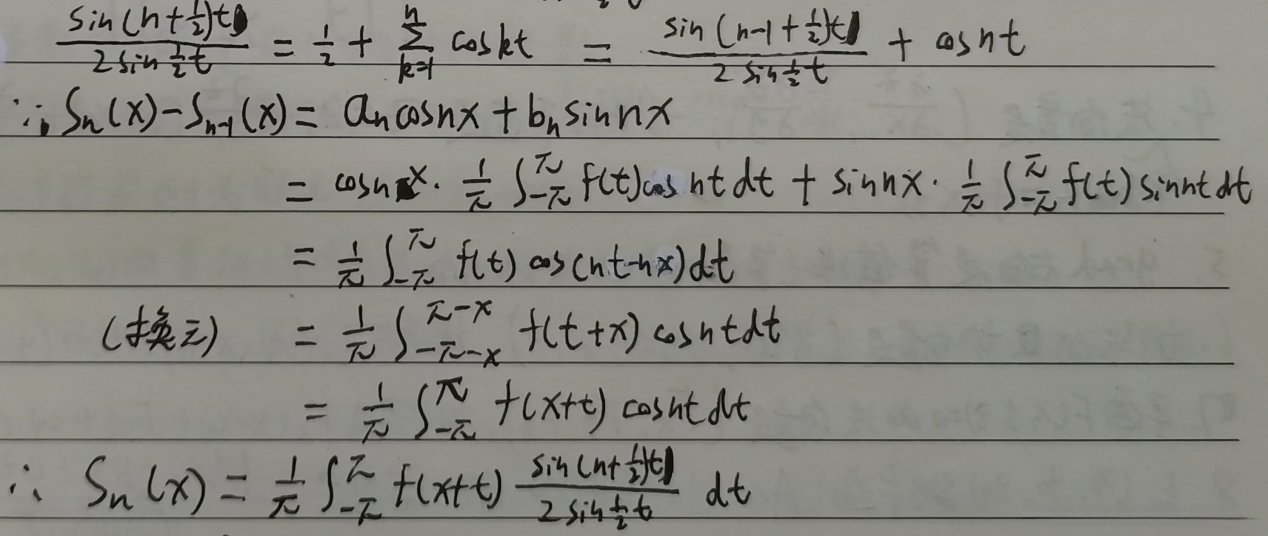 sin(n+½)t / 2sin½t = ½ + ∑_{k=1}^{n} cos kt = sin(n-1+½)t / 2sin½t + cos nt
∵ Sₙ(x)-Sₙ₋₁(x) = aₙcosnx + bₙsinnx
= cosnx · 1/π ∫_{-π}^{π} f(t)cos nt dt + sinnx · 1/π ∫_{-π}^{π} f(t) sinnt dt
= 1/π ∫_{-π}^{π} f(t) cos(nt-nx)dt
(换元) = 1/π ∫_{-π-x}^{π-x} f(t+x) cosntdt
= 1/π ∫_{-π}^{π} f(x+t) cosnt dt
∴ Sₙ(x) = 1/π ∫_{-π}^{π} f(x+t) sin(n+½)t / 2sin½t dt